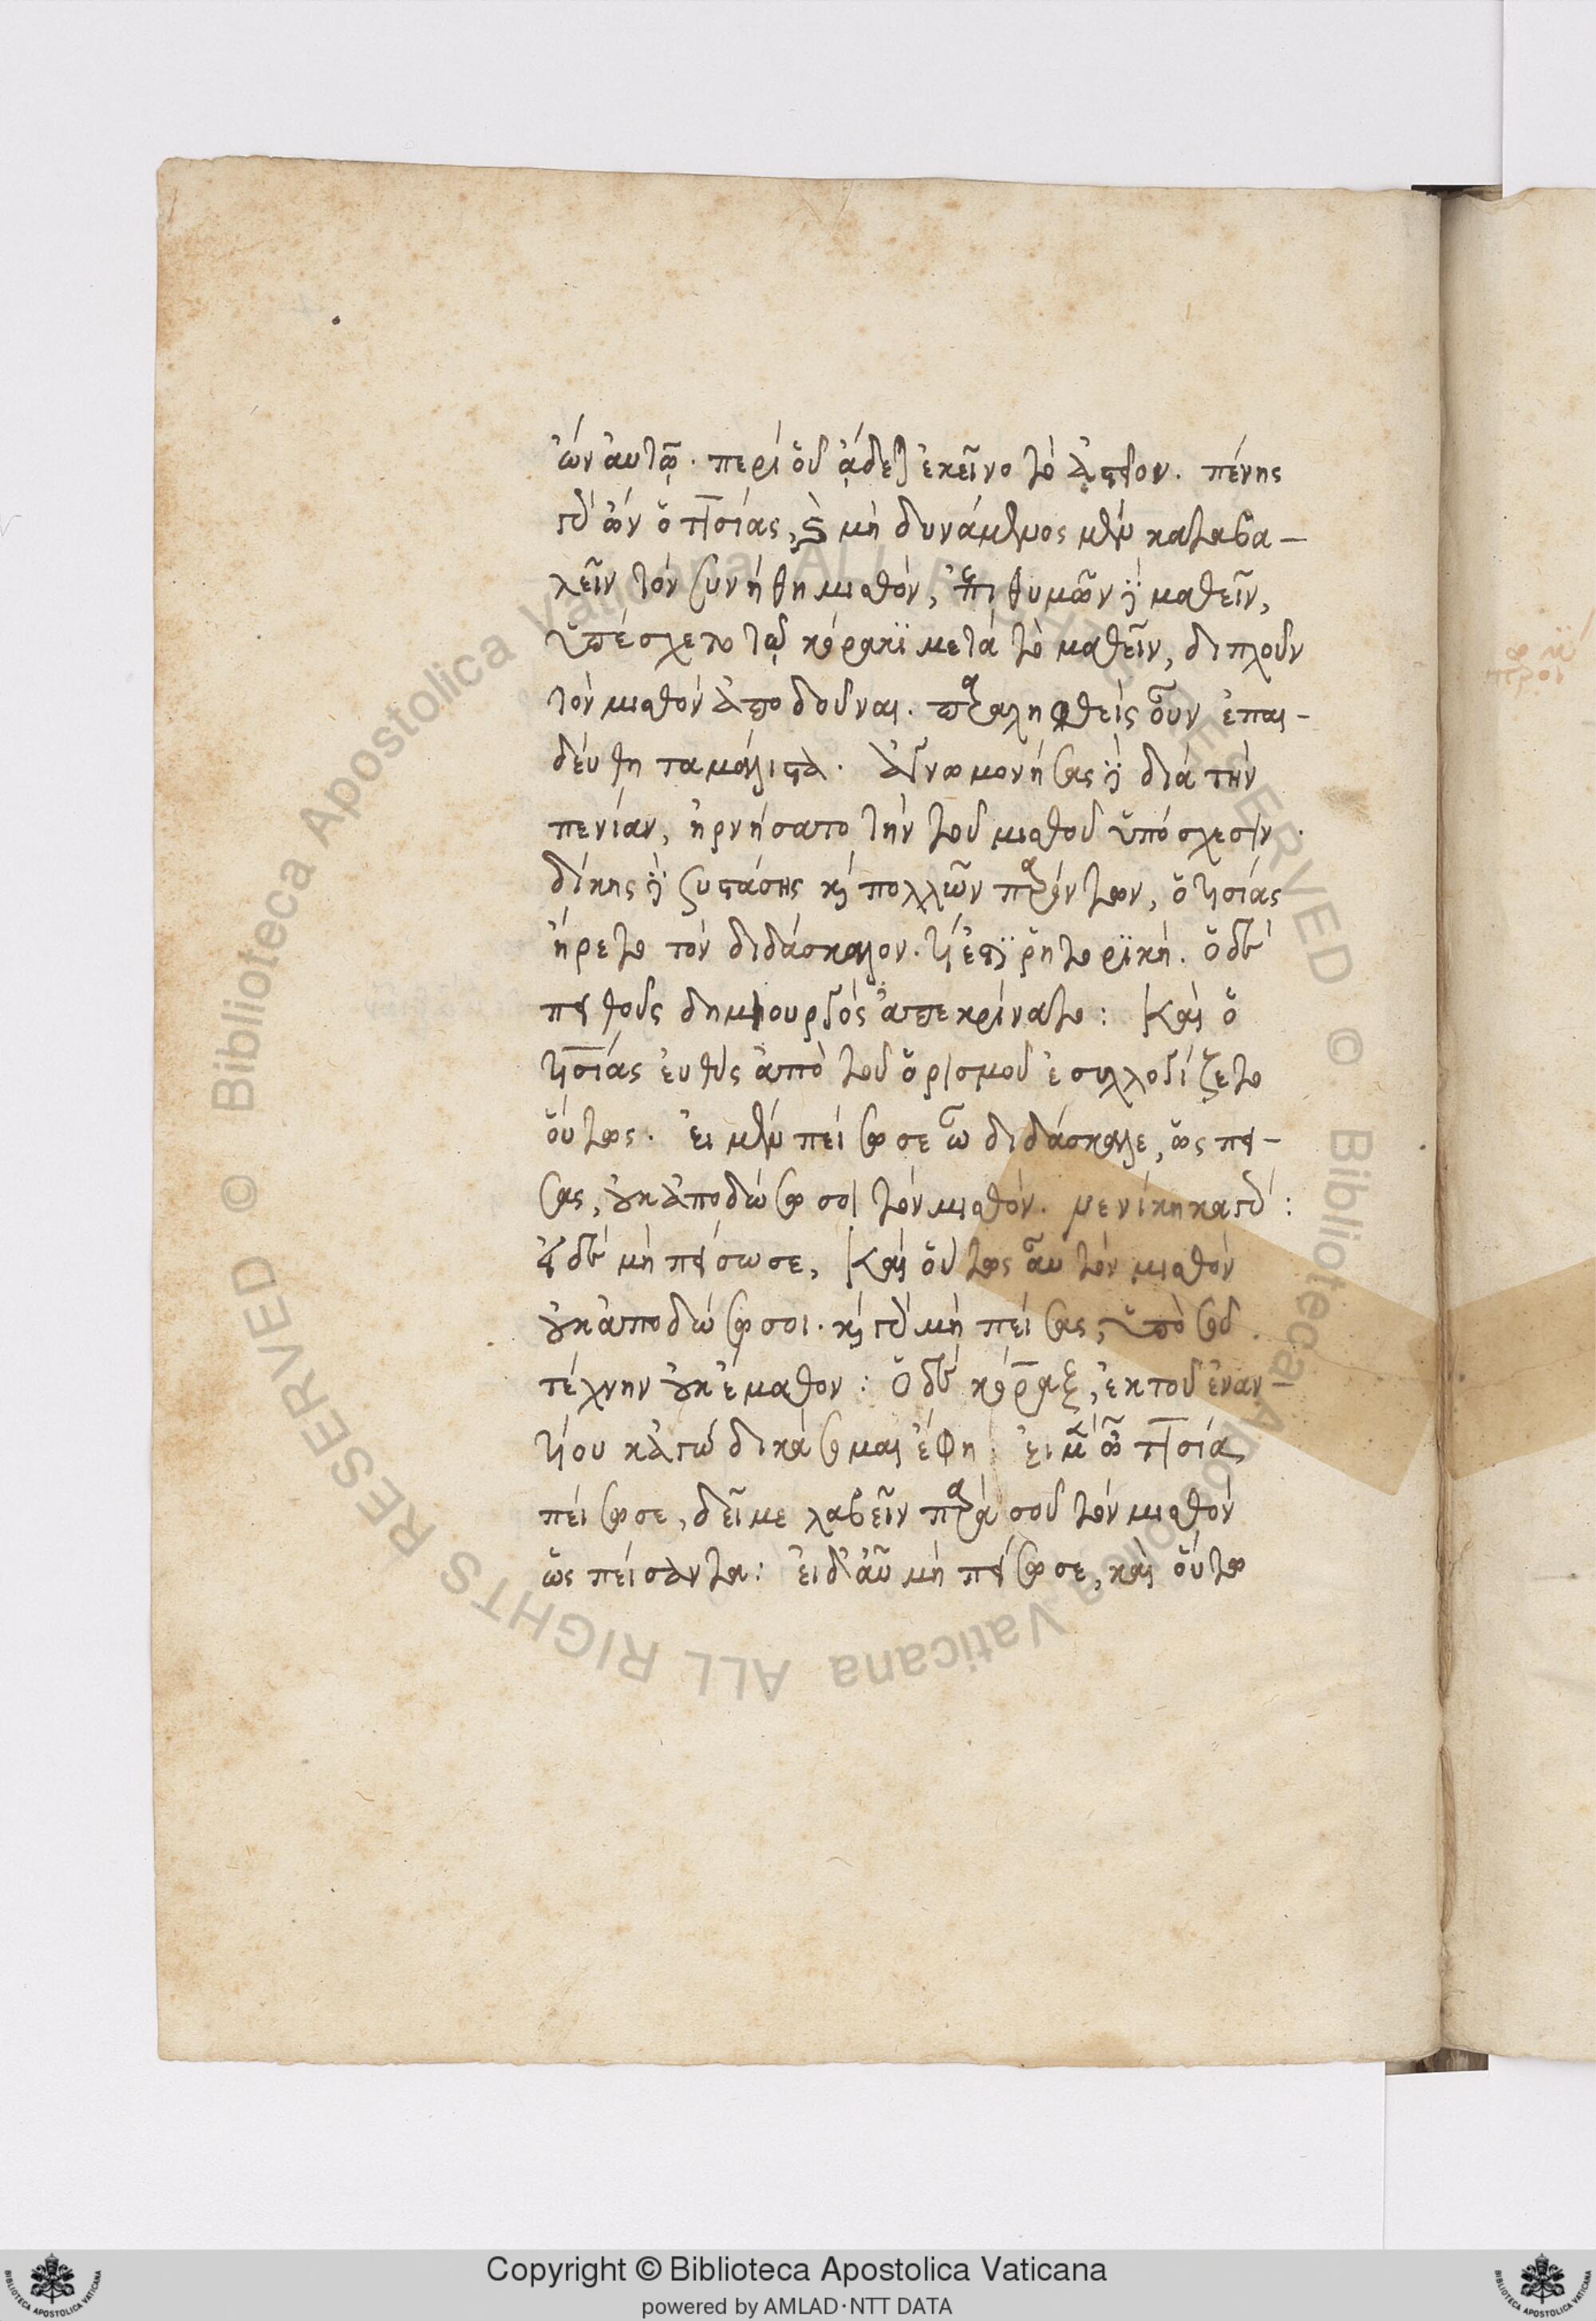 ὤν ἀυτῶ. περὶ οὗ ἄδεται ἐκεῖνο τὸ ἀστεῖον. πένης
γὰρ ὢν ὁ τισίας, καὶ μὴ δυνάμενος μὲν καταβα-
λεῖν τὸν συνήθη μισθόν, ἐπιθυμῶν δὲ μαθεῖν,
ὑπέσχετο τῶ κόρακϊ μετὰ τὸ μαθεῖν, διπλοῦν
τὸν μισθὸν ἀποδοῦναι. παραληφθεὶς οὖν ἐπαι-
δεύθη τα μάλιστα. ἀγνωμονήσας δὲ διὰ τὴν
πενίαν, ἠρνήσατο τὴν τοῦ μισθοῦ ὑπόσχεσιν.
δίκης δὲ συστάσης καὶ πολλῶν παρόντων, ὁ τισίας
ἤρετο τὸν διδάσκαλον. τί ἐστϊ ῥητορϊκή. ὁ δὲ
πειθοῦς δημιουργὸς ἀπεκρίνατο: Καὶ ὁ
τισίας ἐυθὺς ἀπὸ τοῦ ὁρισμοῦ ἐσυλλογίζετο
οὕτως. ἐι μὲν πείσω σε ὦ διδάσκαλε, ὡς πεί-
σας, οὐκ ἀποδώσω σοι τὸν μισθόν. μενίκηκα γάρ:
εἰ δὲ μὴ πείσω σε, Καὶ οὕτως ἂυ τὸν μισθὸν
οὐκ ἀποδώσω σοι. καὶ γὰρ μὴ πείσας, ὑπὸ σοῦ
τέχνην οὐκ ἔμαθον: Ὁ δὲ κόραξ, ἐκ τοῦ ἐναν-
τίου κἀγώ δικάσομαι ἔφη: ἐι μὲν ὦ τισία
πείσω σε, δεῖ με λαβεῖν παρὰ σοῦ τὸν μισθὸν
ὡς πείσαντα: ἐι δ' ἂυ μὴ πείσω σε, καὶ οὕτω
Copyright © Biblioteca Apostolica Vaticana
powered by AMLAD·NTT DATA